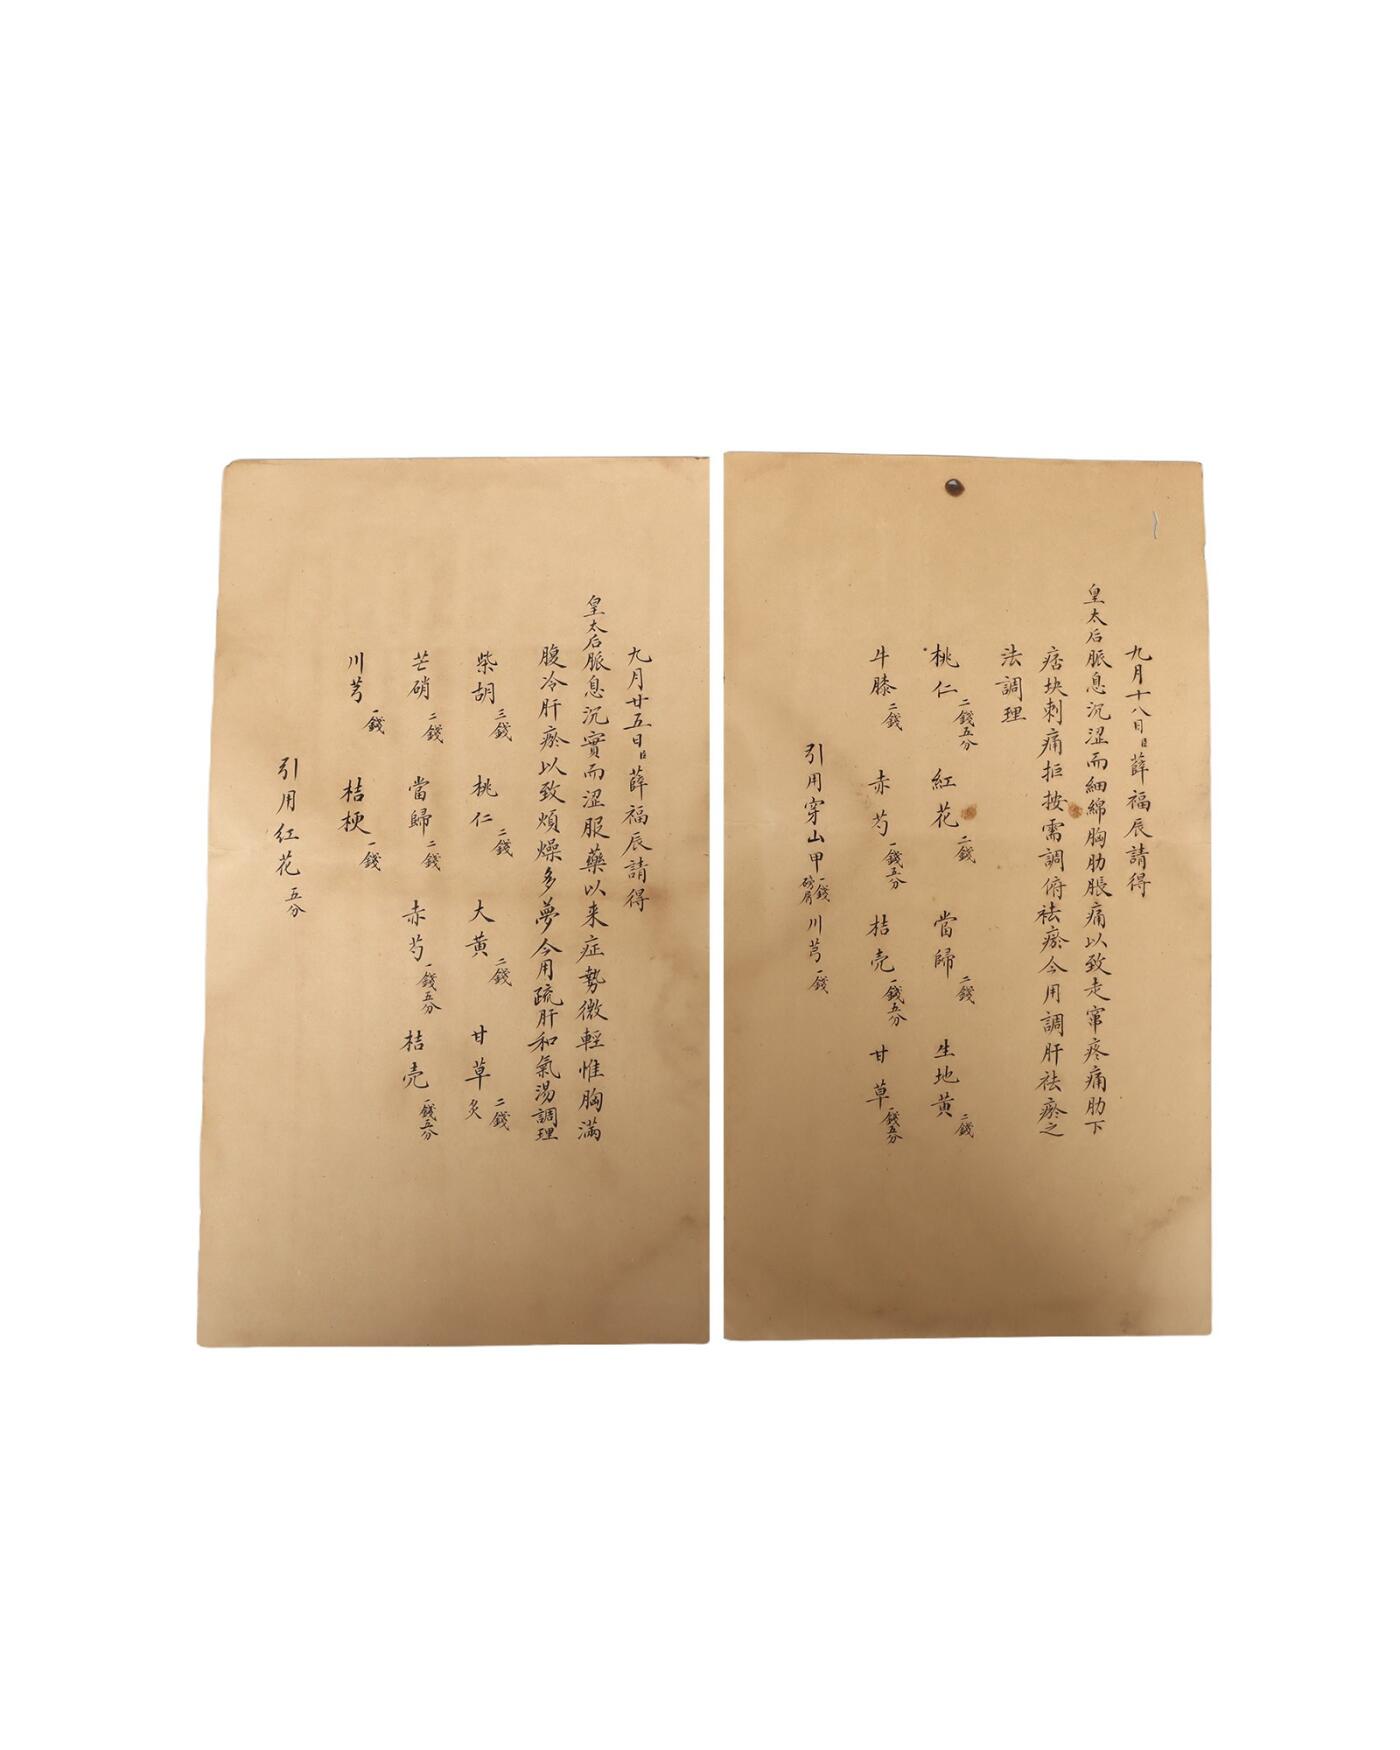 九月十八日日薛福辰請得
皇太后脈息沉澀而細綿胸肋脹痛以致走窜疼痛肋下
痞块刺痛拒按需調俯祛瘀今用調肝祛瘀之
法調理
桃仁二錢五分 紅花二錢 當歸二錢 生地黃二錢
牛膝二錢 赤芍一錢五分 桔壳一錢五分 甘草一錢五分
引用穿山甲一錢 川芎一錢
九月廿五日日薛福辰請得
皇太后脈息沉實而涩服藥以来症勢微輕惟胸滿
腹冷肝瘀以致煩燥多夢今用疏肝和氣湯調理
柴胡三錢 桃仁二錢 大黃二錢 甘草炙二錢
芒硝二錢 當歸二錢 赤芍一錢五分 桔壳一錢五分
川芎一錢 桔梗一錢
引用紅花五分